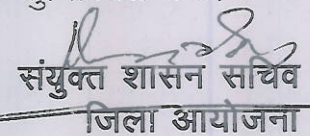 संयुक्त शासन सचिव
जिला आयोजना